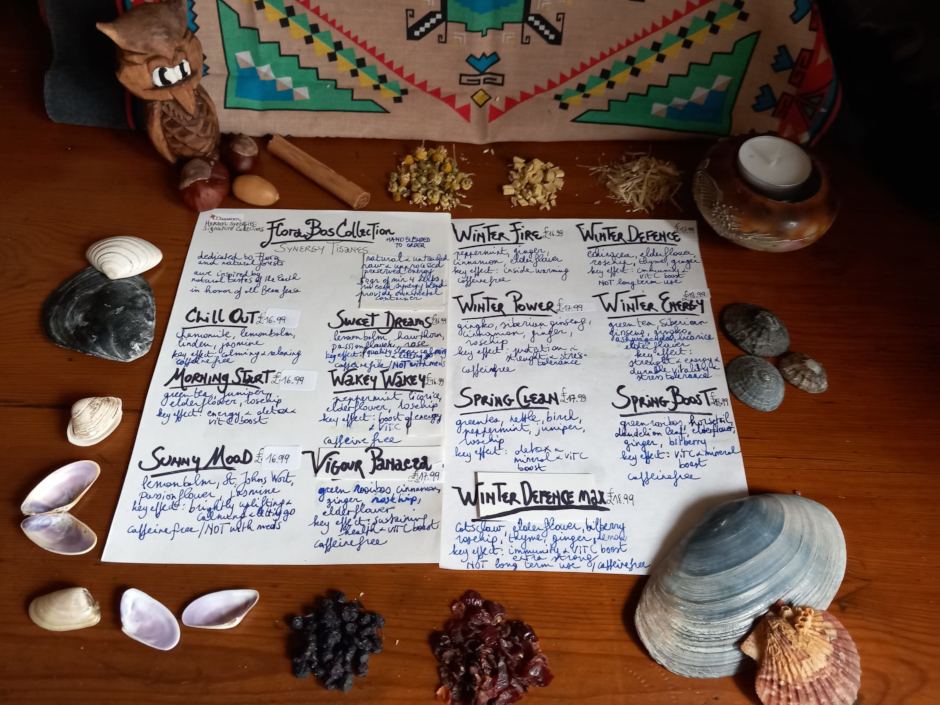 Signature Collections
Flora Bos Collection
Synergy Tisanes
HAND BLENDED
TO ORDER
dedicated to Flora
and natural forests
awe inspired by
natural tastes of the Earth
in honor of all
natural & untreated
raw &
preserved energy
provide
container
Chill Out £16.99
camomile, lemonbalm,
linden, jasmine
key effect: calming & relaxing
caffeine free
Sweet Dreams £16.99
lemonbalm, hawthorn,
passionflower, rose
key effect: quality
caffeine free / NOT with meds
Morning Start £16.99
green tea, juniper,
elderflower, rosehip
key effect: energy & detox &
vit C boost
Wakey Wakey £16.99
peppermint, licorice,
elderflower, rosehip
key effect: boost of energy
& vit C
caffeine free
Sunny Mood £16.99
lemonbalm, St. Johns Wort,
passionflower, jasmine
key effect: brightly uplifting &
calming &
caffeine free / NOT with meds
Vigour Panacea £17.99
green rooibos, cinnamon,
ginger, rosehip,
elderflower
key effect: sustaining
health & vit C boost
caffeine free
Winter Fire £16.99
peppermint, ginger,
cinnamon, elderflower
key effect: inside warming
caffeine free
Winter Defence
echinacea, elderflower,
rosehip, thyme, ginger
key effect: immunity &
vit C boost
NOT long term use
Winter Power £17.99
gingko, siberian ginseng,
cinnamon, ginger,
rosehip
key effect: hydration &
strength & stress
tolerance
caffeine free
Winter Energy
green tea, siberian
ginseng, gingko,
ashwagandha, licorice
elderflower
key effect:
strength & energy &
durable vitality &
stress tolerance
Spring Clean £17.99
green tea, nettle, birch,
peppermint, juniper,
rosehip
key effect:
detox &
mineral & vit C
boost
Spring Boost
green rooibos, horsetail,
dandelion leaf, elderflower,
ginger, bilberry
key effect:
vit C & mineral
boost
caffeine free
Winter Defence Max £18.99
cats claw, elderflower, bilberry
rosehip, thyme, ginger, lemon
key effect: immunity & vit C boost
extra strong
NOT long term use / caffeine free